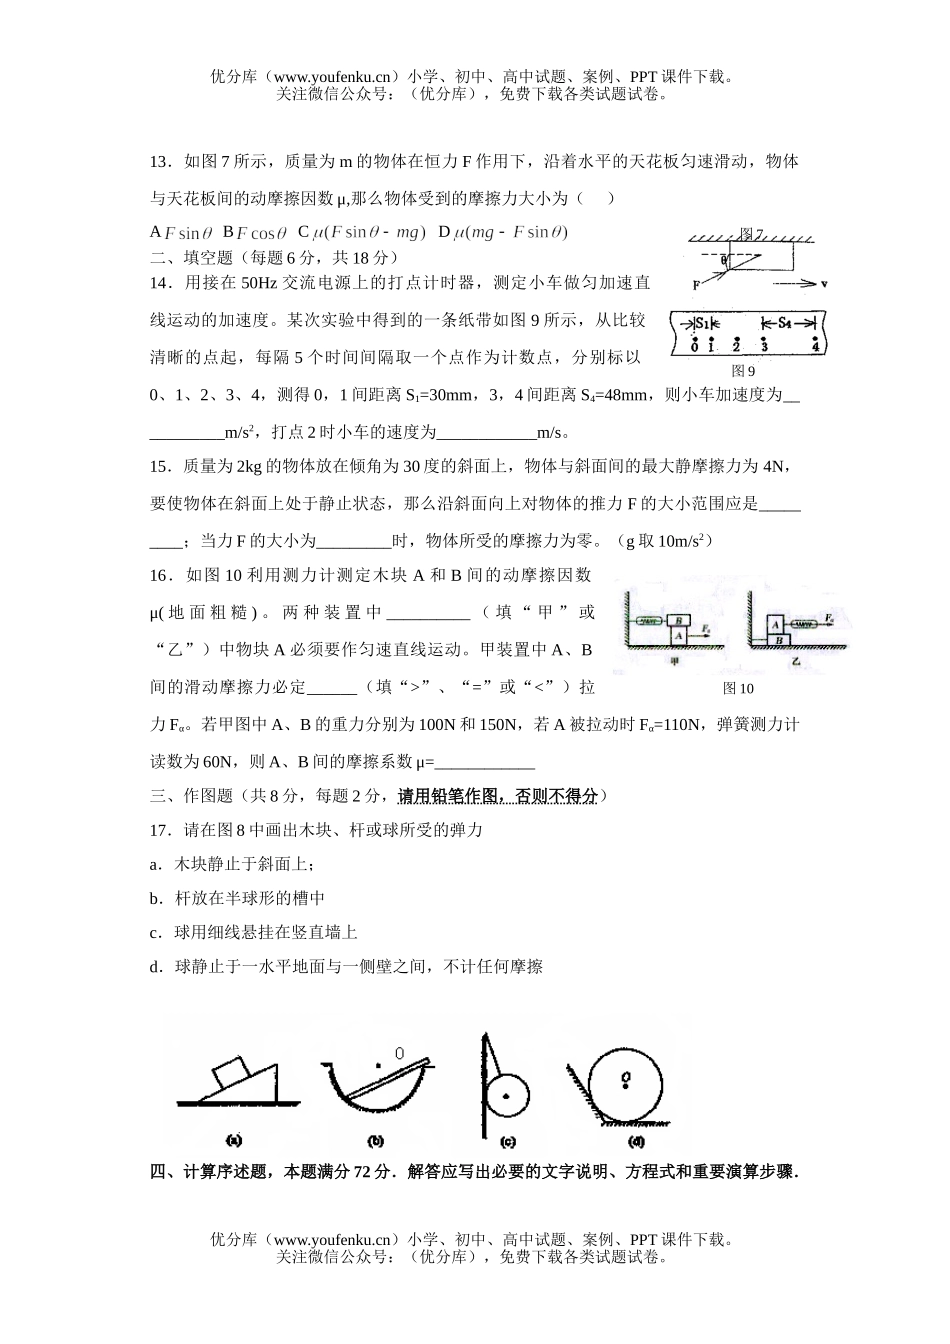 优分库（www.youfenku.cn）小学、初中、高中试题、案例、PPT 课件下载。
关注微信公众号：（优分库），免费下载各类试题试卷。
13．如图 7 所示，质量为 m 的物体在恒力 F 作用下，沿着水平的天花板匀速滑动，物体
与天花板间的动摩擦因数 μ,那么物体受到的摩擦力大小为（    ）
A F sin θ  B F cos θ  C μ(F sin θ - mg)  D μ(mg - F sin θ)
图 7
θ
F
v
二、填空题（每题 6 分，共 18 分）
14．用接在 50Hz 交流电源上的打点计时器，测定小车做匀加速直
线运动的加速度。某次实验中得到的一条纸带如图 9 所示，从比较
清晰的点起，每隔 5 个时间间隔取一个点作为计数点，分别标以
S1 S4
0 1 2 3 4
图 9
0、1、2、3、4，测得 0，1 间距离 S1=30mm，3，4 间距离 S4=48mm，则小车加速度为__
_________m/s2，打点 2 时小车的速度为____________m/s。
15．质量为 2kg 的物体放在倾角为 30 度的斜面上，物体与斜面间的最大静摩擦力为 4N，
要使物体在斜面上处于静止状态，那么沿斜面向上对物体的推力 F 的大小范围应是_____
____；当力 F 的大小为_________时，物体所受的摩擦力为零。（g 取 10m/s2）
16．如图 10 利用测力计测定木块 A 和 B 间的动摩擦因数
μ(地面粗糙)。两种装置中__________（填“甲”或
“乙”）中物块 A 必须要作匀速直线运动。甲装置中 A、B
间的滑动摩擦力必定______（填“>”、“=”或“<”）拉
B
A
甲
A
B
乙
图 10
力 Fα。若甲图中 A、B 的重力分别为 100N 和 150N，若 A 被拉动时 Fα=110N，弹簧测力计
读数为 60N，则 A、B 间的摩擦系数 μ=____________
三、作图题（共 8 分，每题 2 分，请用铅笔作图，否则不得分）
17．请在图 8 中画出木块、杆或球所受的弹力
a．木块静止于斜面上；
b．杆放在半球形的槽中
c．球用细线悬挂在竖直墙上
d．球静止于一水平地面与一侧壁之间，不计任何摩擦
O
O
(a) (b) (c) (d)
四、计算序述题，本题满分 72 分．解答应写出必要的文字说明、方程式和重要演算步骤．
优分库（www.youfenku.cn）小学、初中、高中试题、案例、PPT 课件下载。
关注微信公众号：（优分库），免费下载各类试题试卷。